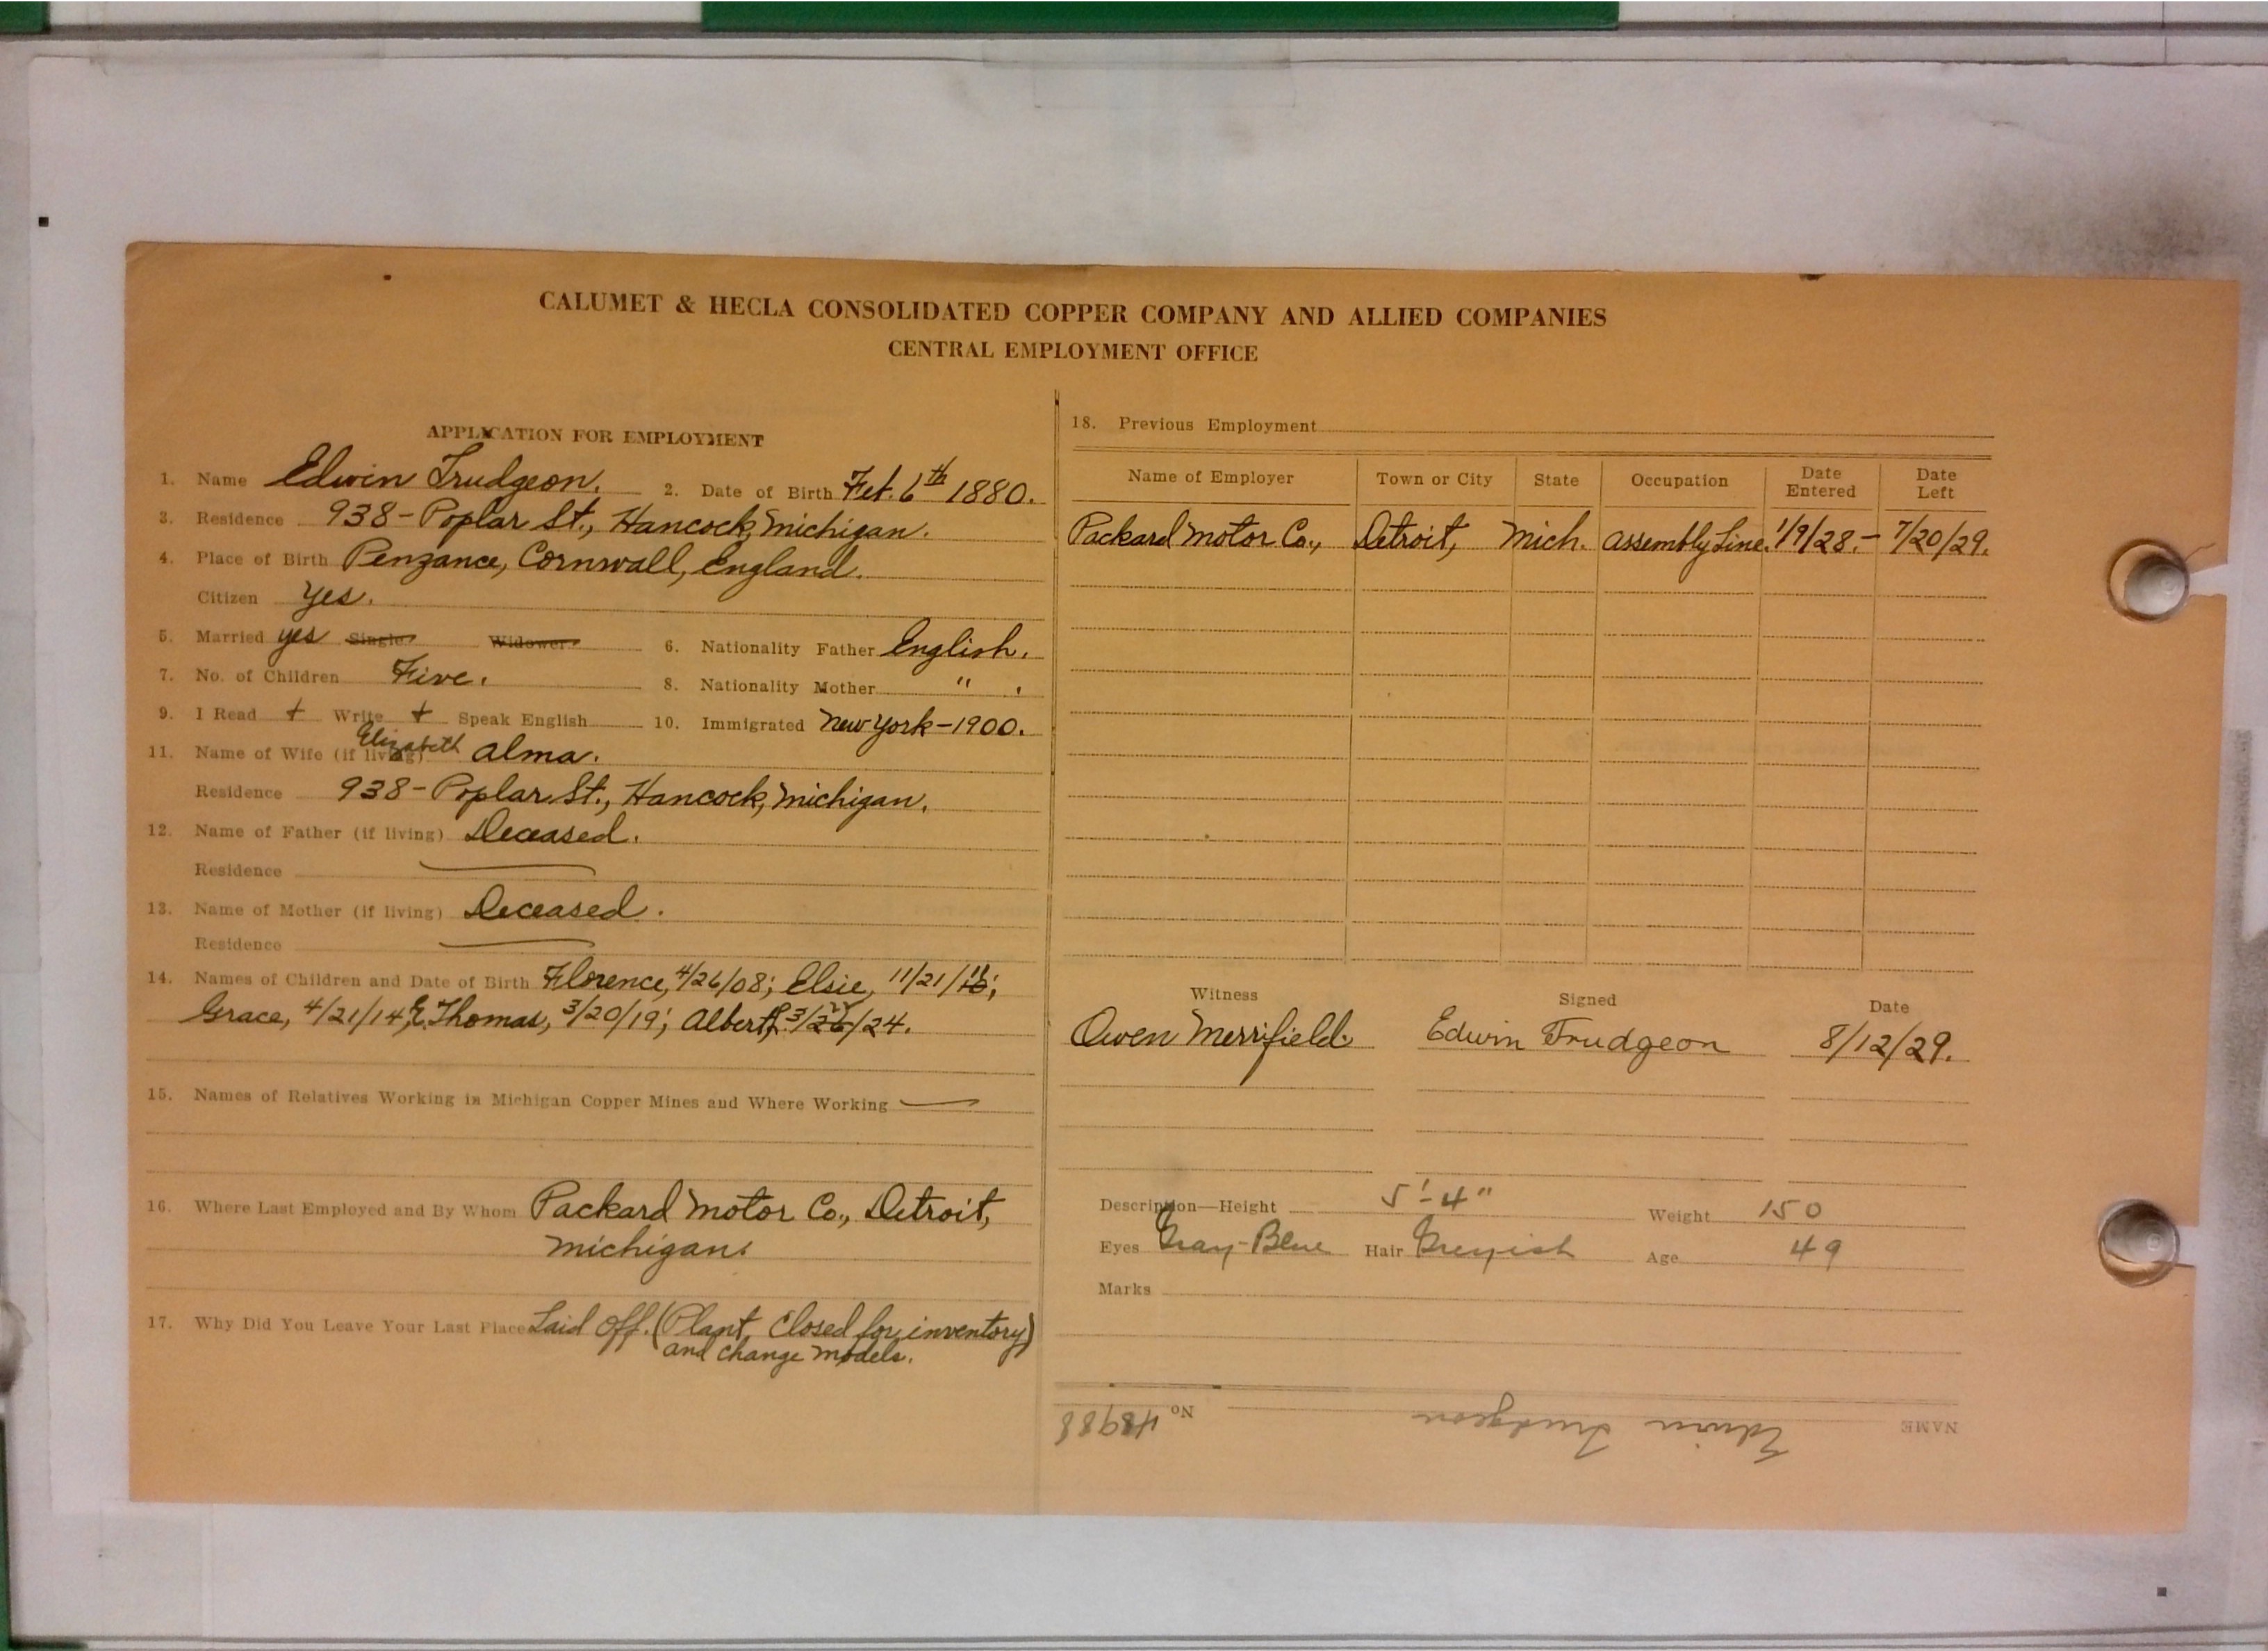 CALUMET & HECLA CONSOLIDATED COPPER COMPANY AND ALLIED COMPANIES
CENTRAL EMPLOYMENT OFFICE
APPLICATION FOR EMPLOYMENT
1. Name Edwin Trudgeon. 2. Date of Birth Feb. 6th 1880.
3. Residence 938-Poplar St., Hancock, Michigan.
4. Place of Birth Penzance, Cornwall, England.
Citizen Yes.
5. Married yes Single Widower 6. Nationality Father English.
7. No. of Children Five. 8. Nationality Mother " .
9. I Read + Write + Speak English 10. Immigrated New York-1900.
11. Name of Wife (if living) Elizabeth Alma.
Residence 938-Poplar St., Hancock, Michigan.
12. Name of Father (if living) Deceased.
Residence
13. Name of Mother (if living) Deceased.
Residence
14. Names of Children and Date of Birth Florence, 4/26/08; Elsie, 11/21/
Grace, 4/21/14; E. Thomas, 3/20/19; Albert 3/ /24.
15. Names of Relatives Working in Michigan Copper Mines and Where Working —
16. Where Last Employed and By Whom Packard Motor Co., Detroit,
Michigan.
17. Why Did You Leave Your Last Place Laid off. (Plant closed for inventory)
and change models.
18. Previous Employment
Name of Employer Town or City State Occupation Date Entered Date Left
Packard Motor Co., Detroit, Mich. Assembly Line. 1/9/28.- 7/20/29.
Witness Signed Date
Owen Merrifield. Edwin Trudgeon 8/12/29.
Description—Height 5'-4" Weight 150
Eyes Gray-Blue Hair Greyish Age 49
Marks
NAME Edwin Trudgeon No. 48988